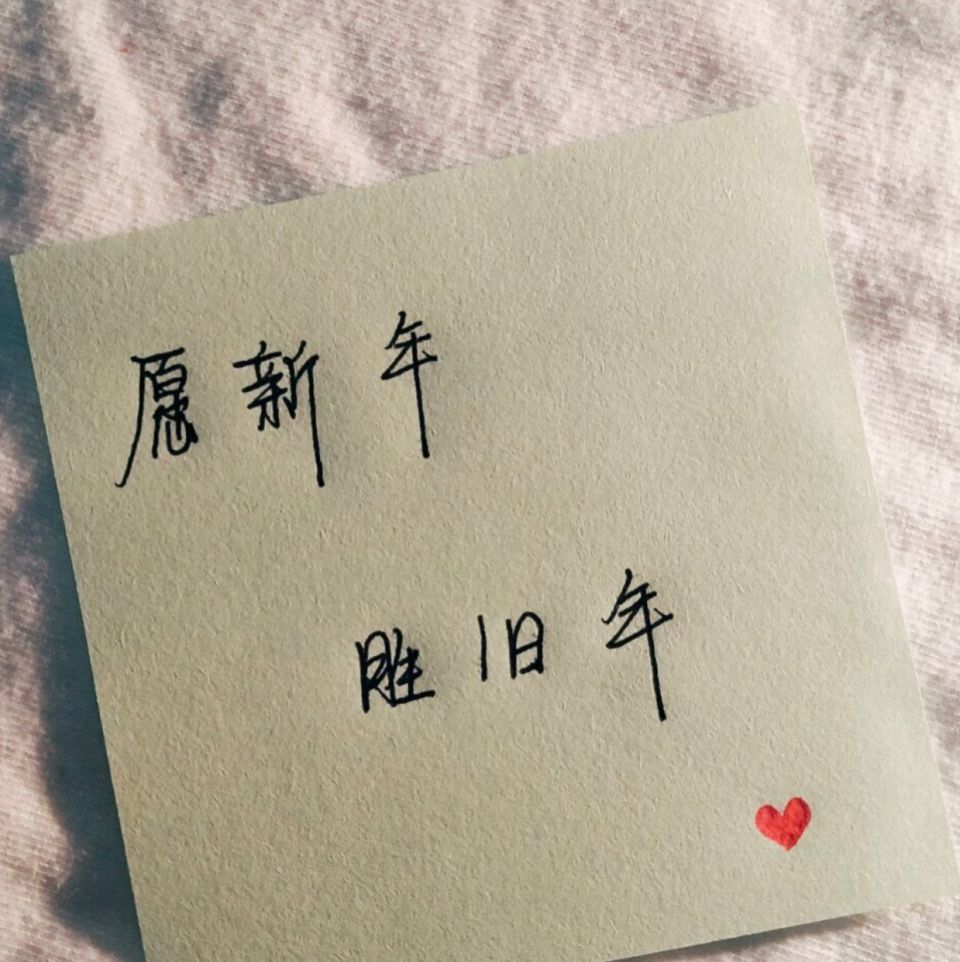 愿新年
胜旧年